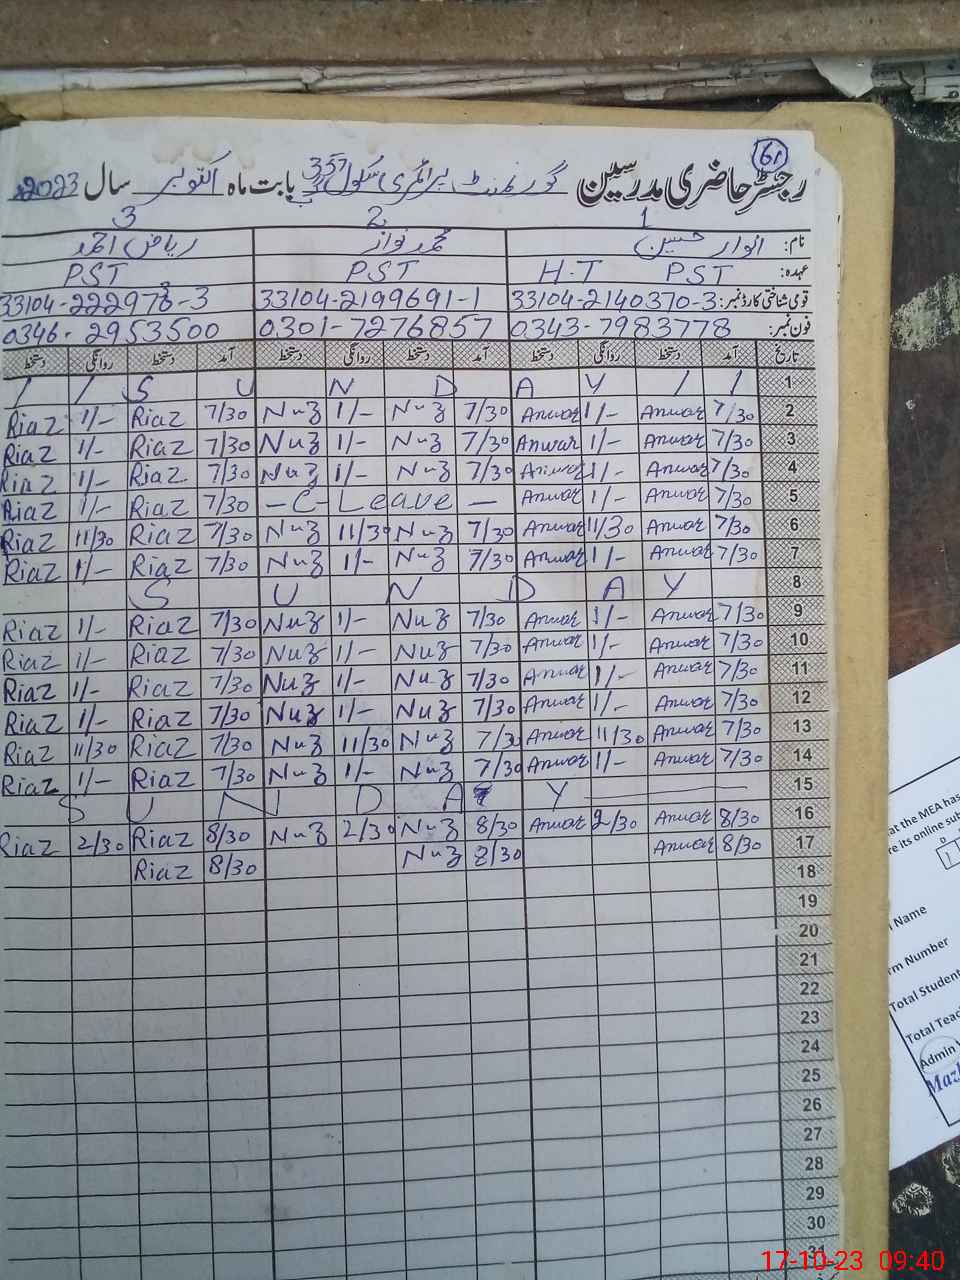 61
رجسٹر حاضری مدرسین گورنمنٹ پرائمری سکول 357 بابت ماہ اکتوبر سال 2023ء
1 2 3
نام: انوار حسین محمد نواز ریاض احمد
عہدہ: H.T PST PST PST
قومی شناختی کارڈ نمبر: 33104-2140370-3 33104-2199691-1 33104-222978-3
فون نمبر: 0343-7983778 0301-7276857 0346-2953500
تاریخ آمد دستخط روانگی دستخط آمد دستخط روانگی دستخط آمد دستخط روانگی دستخط
1 / / S U N D A Y / /
2 7/30 Anwar 1/- Anwar 7/30 Nuz 1/- Nuz 7/30 Riaz 1/- Riaz
3 7/30 Anwar 1/- Anwar 7/30 Nuz 1/- Nuz 7/30 Riaz 1/- Riaz
4 7/30 Anwar 1/- Anwar 7/30 Nuz 1/- Nuz 7/30 Riaz 1/- Riaz
5 7/30 Anwar 1/- Anwar - C - Leave - 7/30 Riaz 1/- Riaz
6 7/30 Anwar 11/30 Anwar 7/30 Nuz 11/30 Nuz 7/30 Riaz 11/30 Riaz
7 7/30 Anwar 1/- Anwar 7/30 Nuz 1/- Nuz 7/30 Riaz 1/- Riaz
8 S U N D A Y
9 7/30 Anwar 1/- Anwar 7/30 Nuz 1/- Nuz 7/30 Riaz 1/- Riaz
10 7/30 Anwar 1/- Anwar 7/30 Nuz 1/- Nuz 7/30 Riaz 1/- Riaz
11 7/30 Anwar 1/- Anwar 7/30 Nuz 1/- Nuz 7/30 Riaz 1/- Riaz
12 7/30 Anwar 1/- Anwar 7/30 Nuz 1/- Nuz 7/30 Riaz 1/- Riaz
13 7/30 Anwar 11/30 Anwar 7/30 Nuz 11/30 Nuz 7/30 Riaz 11/30 Riaz
14 7/30 Anwar 1/- Anwar 7/30 Nuz 1/- Nuz 7/30 Riaz 1/- Riaz
15 S U N D A Y
16 8/30 Anwar 2/30 Anwar 8/30 Nuz 2/30 Nuz 8/30 Riaz 2/30 Riaz
17 8/30 Anwar 8/30 Nuz 8/30 Riaz
18
19
20
21
22
23
24
25
26
27
28
29
30
31
at the MEA has
re its online sub
Name
rm Number
Total Student
Total Teac
Admin
Mazh
17-10-23 09:40